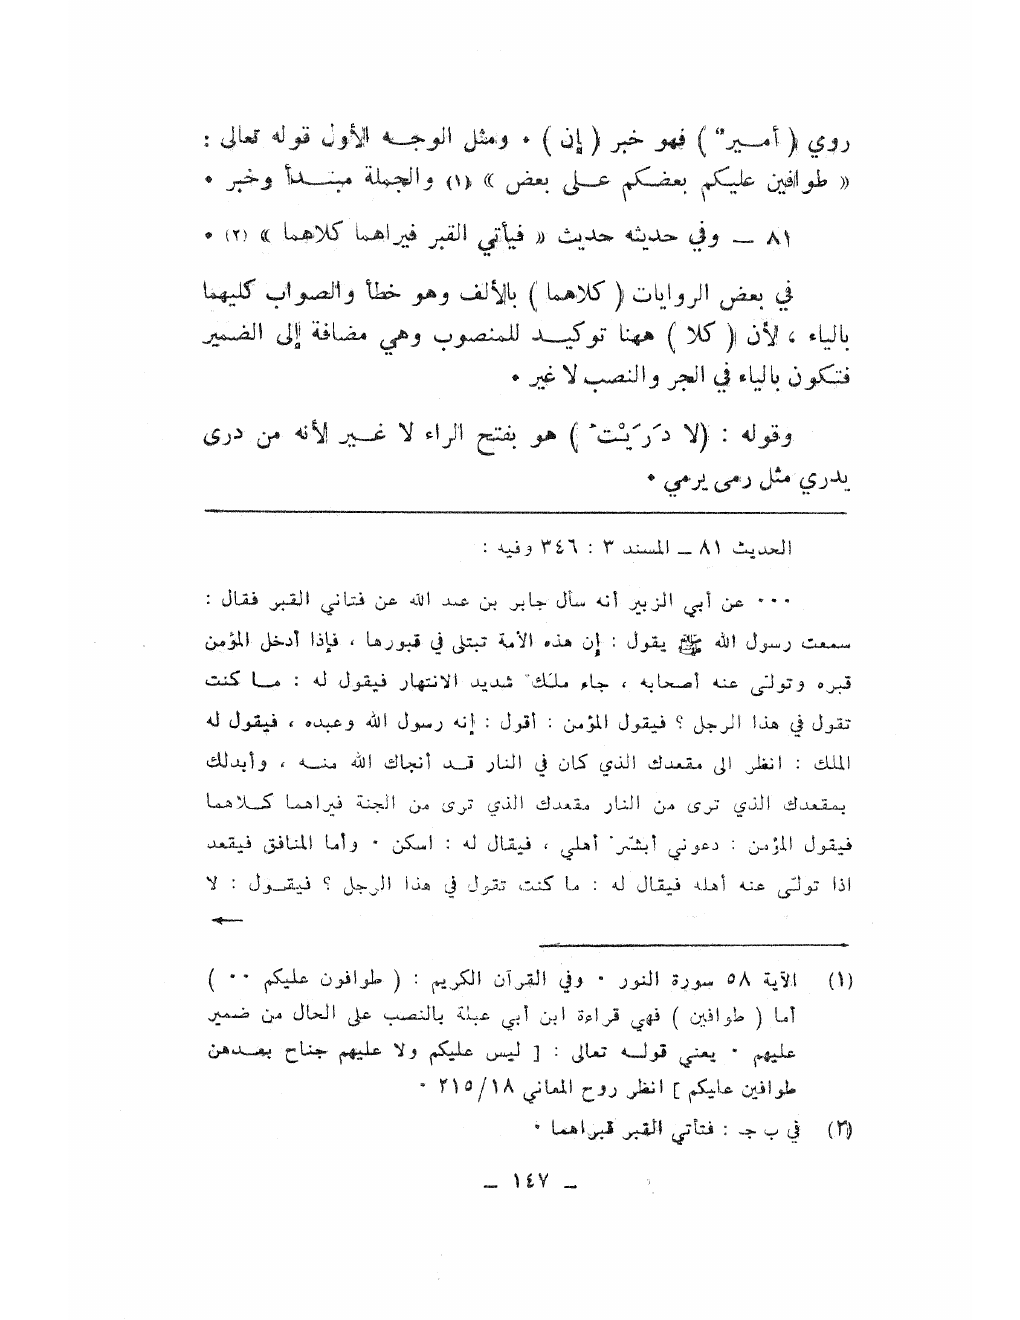 روي ( أمير" ) فهو خبر ( إن ) ٠ ومثل الوجه الأول قوله تعالى :
« طوافين عليكم بعضكم على بعض » (١) والجملة مبتدأ وخبر ٠
٨١ ــ وفي حديثه حديث « فيأتي القبر فيراهما كلاهما » (٢) ٠
في بعض الروايات ( كلاهما ) بالألف وهو خطأ والصواب كليهما
بالياء ، لأن ( كلا ) ههنا توكيد للمنصوب وهي مضافة إلى الضمير
فتكون بالياء في الجر والنصب لا غير ٠
وقوله : (لا دَرَيْتَ ) هو بفتح الراء لا غير لأنه من درى
يدري مثل رمى يرمي ٠
الحديث ٨١ ــ المسند ٣ : ٣٤٦ وفيه :
٠٠٠ عن أبي الزبير أنه سأل جابر بن عبد الله عن فتاني القبر فقال :
سمعت رسول الله ﷺ يقول : إن هذه الأمة تبتلى في قبورها ، فإذا أدخل المؤمن
قبره وتولّى عنه أصحابه ، جاء ملك شديد الانتهار فيقول له : ما كنت
تقول في هذا الرجل ؟ فيقول المؤمن : أقول : إنه رسول الله وعبده ، فيقول له
الملك : انظر الى مقعدك الذي كان في النار قد أنجاك الله منه ، وأبدلك
بمقعدك الذي ترى من النار مقعدك الذي ترى من الجنة فيراهما كلاهما
فيقول المؤمن : دعوني أبشّر أهلي ، فيقال له : اسكن ٠ وأما المنافق فيقعد
اذا تولّى عنه أهله فيقال له : ما كنت تقول في هذا الرجل ؟ فيقول : لا
←
(١) الآية ٥٨ سورة النور ٠ وفي القرآن الكريم : ( طوافون عليكم ٠٠ )
أما ( طوافين ) فهي قراءة ابن أبي عبلة بالنصب على الحال من ضمير
عليهم ٠ يعني قوله تعالى : [ ليس عليكم ولا عليهم جناح بعدهن
طوافين عليكم ] انظر روح المعاني ٢١٥/١٨ ٠
(٢) في ب جـ : فتأتي القبر قبراهما ٠
ــ ١٤٧ ــ